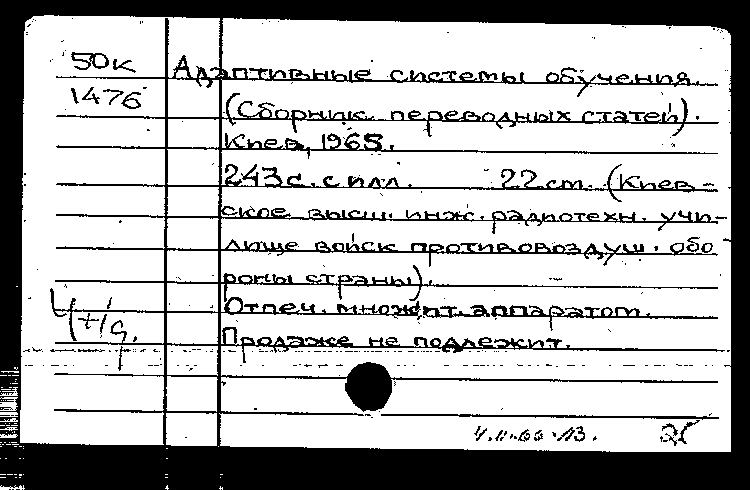 50к Адаптивные системы обучения
1476 (Сборник переводных статей).
Киев, 1965.
243 с. с илл. 22 cm. (Киев-
ское высш. инж. радиотехн. учи-
лище войск противовоздуш. обо
роны страны).
Отпеч. множит. аппаратом.
Продаже не подлежит.